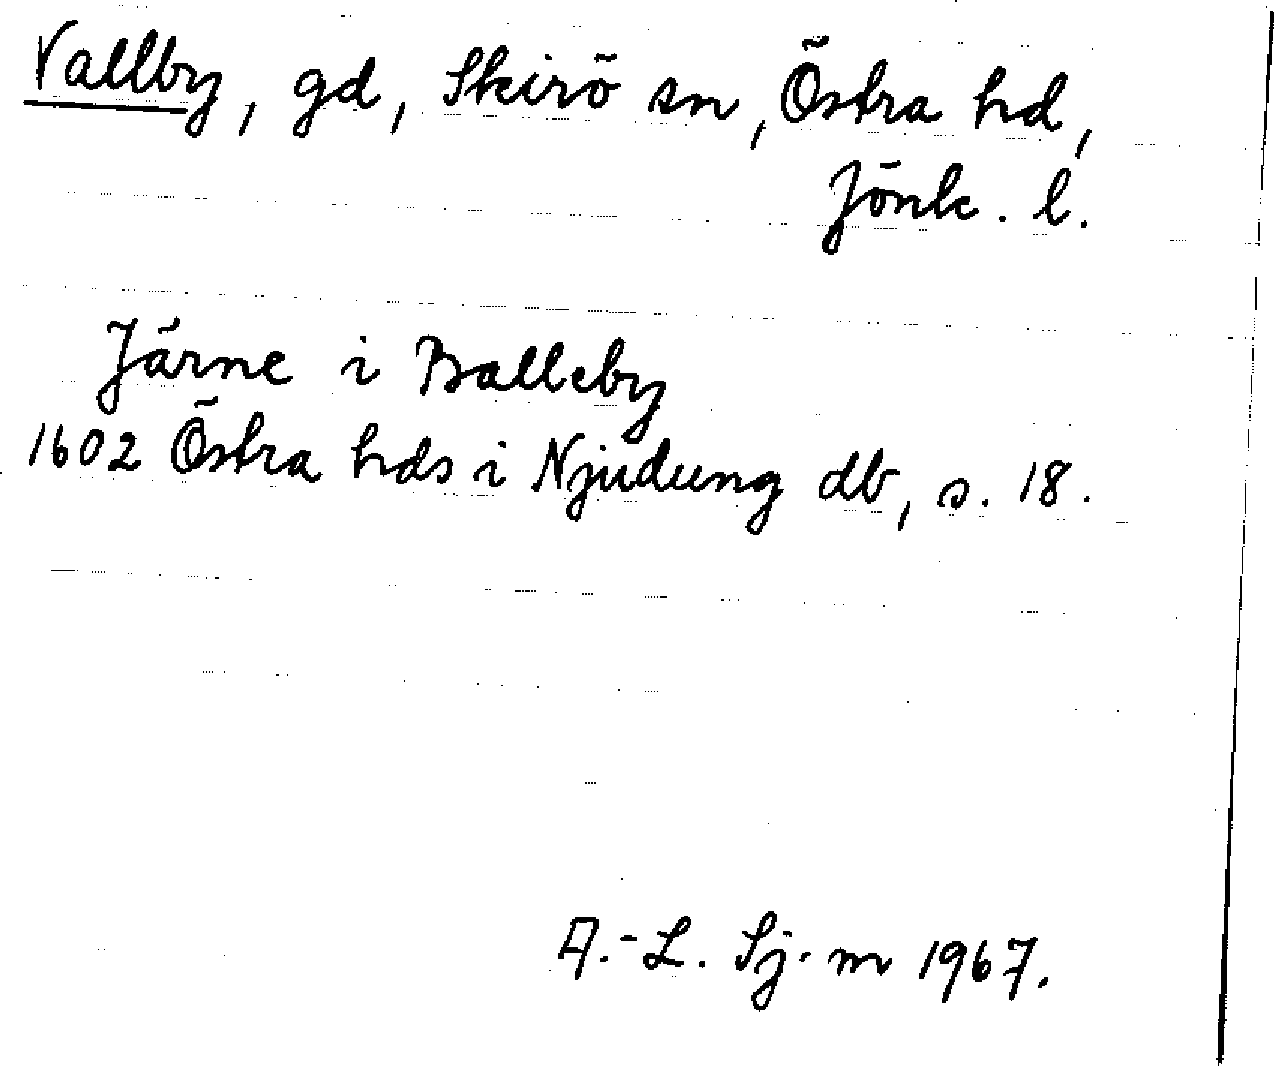 Vallby, gd, Skirö sn, Östra hd,
Jönk. l.
Järne i Balleby
1602 Östra hds i Njudung db, s. 18.
A.-L. Sj.m 1967.